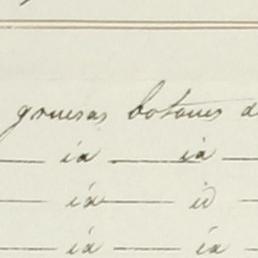 gruesas botones d
id id
id id
id id